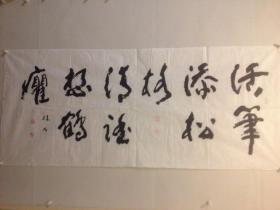 活筆
添松
格
清謠
想鶴
癯